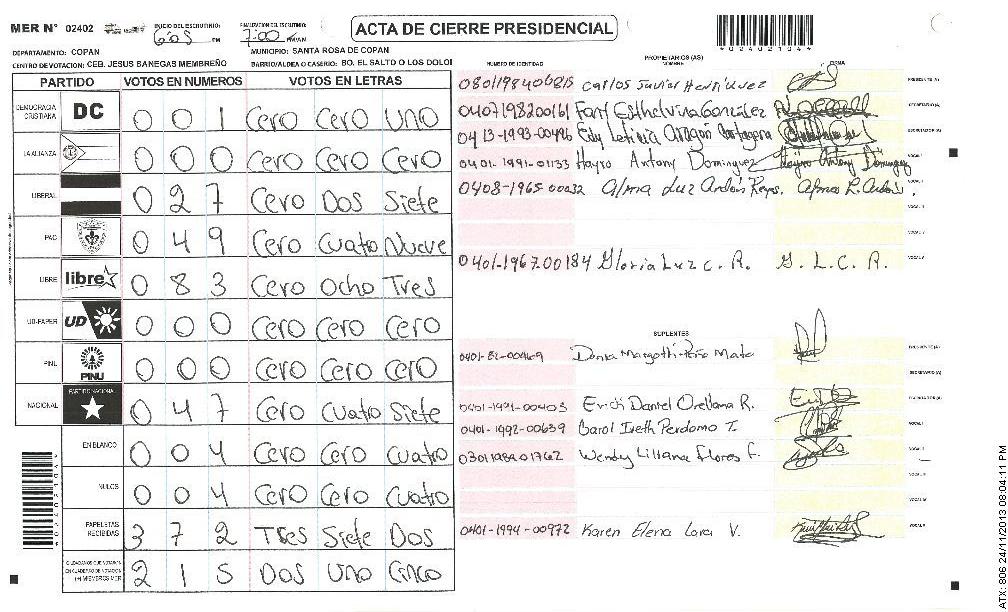 MER N° 02402 INICIO DEL ESCRUTINIO: 6:05 PM FINALIZACION DEL ESCRUTINIO: 7:00 PM/AM ACTA DE CIERRE PRESIDENCIAL
DEPARTAMENTO: COPAN MUNICIPIO: SANTA ROSA DE COPAN
CENTRO DE VOTACION: CEB. JESUS BANEGAS MEMBREÑO BARRIO/ALDEA O CASERIO: BO. EL SALTO O LOS DOLO
*02402104*
PARTIDO VOTOS EN NUMEROS VOTOS EN LETRAS
DEMOCRACIA CRISTIANA DC 0 0 1 Cero Cero Uno
LA ALIANZA 0 0 0 Cero Cero Cero
LIBERAL 0 2 7 Cero Dos Siete
PAC 0 4 9 Cero Cuatro Nueve
LIBRE libre 0 8 3 Cero Ocho Tres
UD-FAPER UD 0 0 0 Cero Cero Cero
PINU PINU 0 0 0 Cero Cero Cero
NACIONAL PARTIDO NACIONAL 0 4 7 Cero Cuatro Siete
EN BLANCO 0 0 4 Cero Cero Cuatro
NULOS 0 0 4 Cero Cero Cuatro
PAPELETAS RECIBIDAS 3 7 2 Tres Siete Dos
CIUDADANOS QUE VOTARON EN CUADERNO DE VOTACION (+) MIEMBROS MER 2 1 5 Dos Uno Cinco
PROPIETARIOS (AS)
NUMERO DE IDENTIDAD NOMBRE FIRMA
Carlos Javier Henriquez PRESIDENTE (A)
0407198200161 González SECRETARIO (A)
0413-1993-00496 Edy Leticia Aragon Cartagena ESCRUTADOR (A)
0401-1991-01133 Hayro Antony Dominguez Hayro Antony Dominguez VOCAL I
0408-1965-00032 Alma Luz Ardón Reyes. Alma L. Ardón VOCAL II
0401-1967-00184 Gloria Luz C. R. G. L. C. R.
SUPLENTES
0401-82-00469 Dania Margoth Peña Mata PRESIDENTE (A)
SECRETARIO (A)
0401-1991-00403 Erick Daniel Orellana R. ESCRUTADOR (A)
0401-1992-00639 Carol Iveth Perdomo T. VOCAL I
0301198901762 Wendy Liliana Flores F.
0401-1994-00972 Karen Elena Lara V.
ATX: 806 24/11/2013 08:04:11 PM